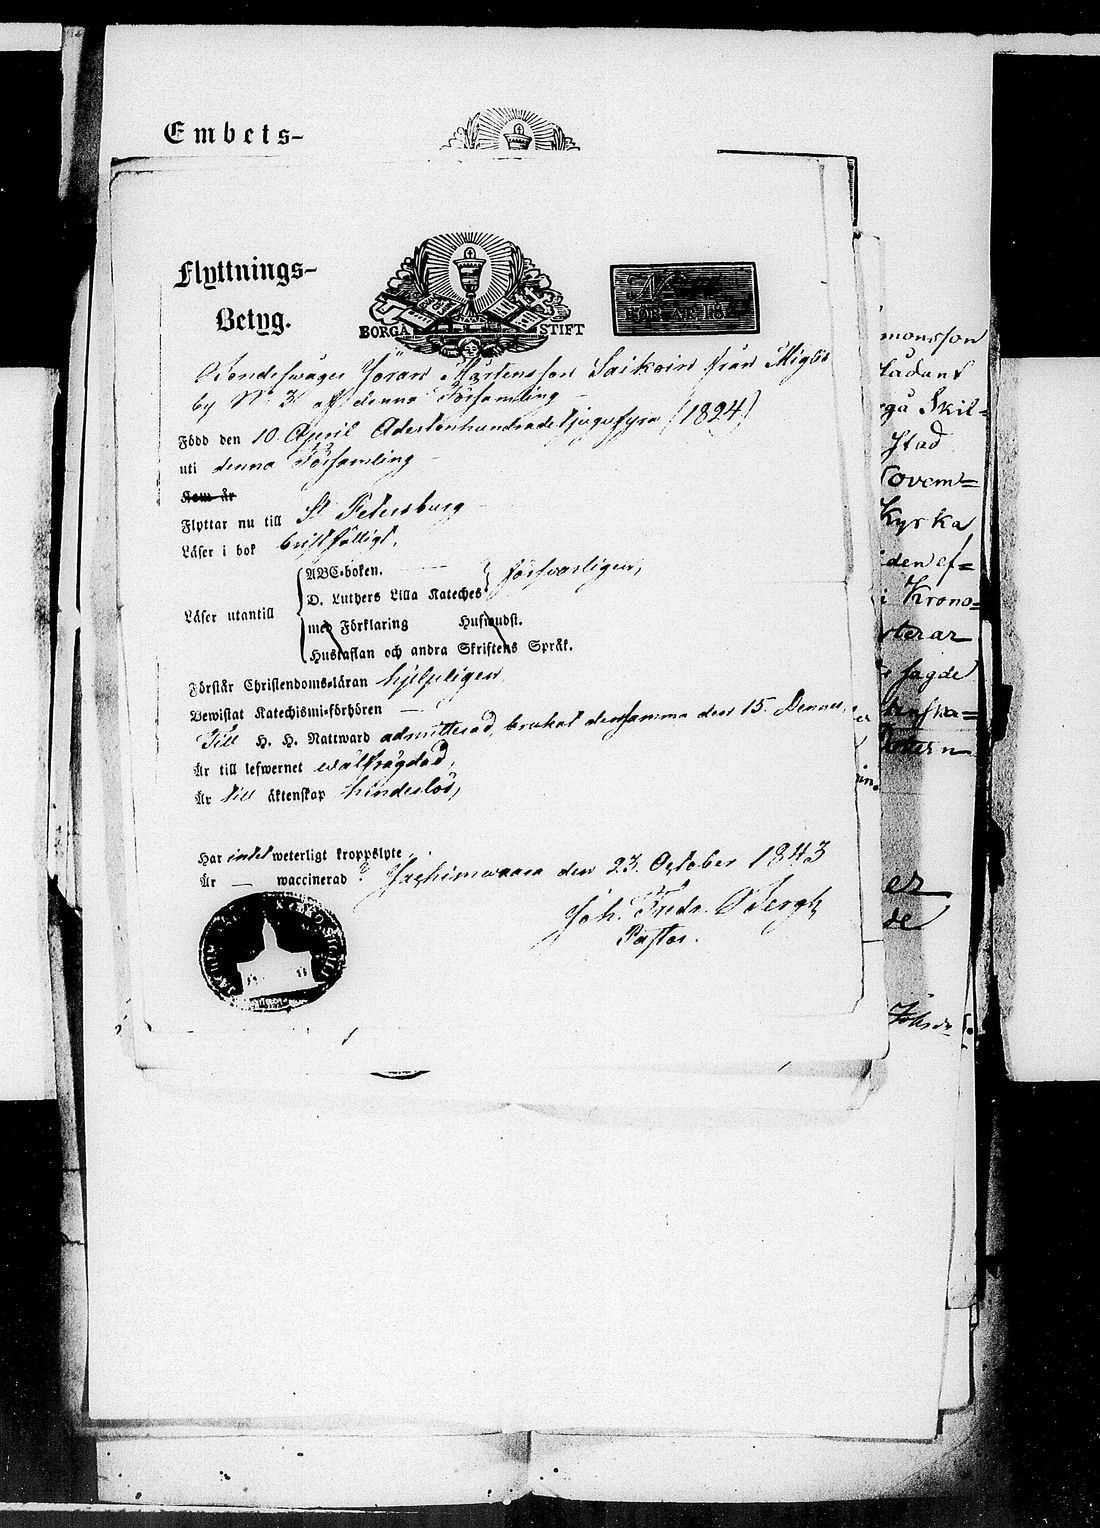 Embets-
Flyttnings-
Betyg.
BORGÅ STIFT
FÖR ÅR 18
Bondeswåger Jöran Mårtensson Saikoin från
by No 3 af denna Församling
Född den 10 April Adertonhundradetjugufyra (1824)
uti denna Församling
Kom år
Flyttar nu till St Petersburg
Läser i bok bristfälligt,
Läser utantill
ABC-boken.
D. Luthers Lilla Kateches försvarligen,
med Förklaring Hufwudst.
Hustaflan och andra Skriftens Språk.
Förstår Christendoms-läran hjelpligen
Bewistat Katechismi-förhören —
Till H. H. Nattward admitterad, brukat densamma den 15. Dennes,
Är till lefwernet wälfrägdad,
Är till äktenskap hinderlös,
Har intet weterligt kroppslyte,
Är — waccinerad ? Jachimwaara den 23. October 1843
Joh. Fredr. Bergh
Pastor.
monsson
Skil=
stad
ovem=
Kyrka
den ef=
i Krono=
sagde
er
de